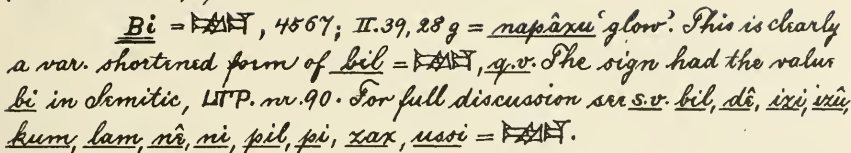 Bi = 𒉈, 4567; II.39, 28 g = napâxu ‘glow’. This is clearly
a var. shortened form of bil = 𒉈, q.v. The sign had the value
bi in Semitic, LTP. nr. 90. For full discussion see s.v. bil, dê, izi, izû,
kum, lam, nê, ni, pil, pi, zax, ussi = 𒉈.